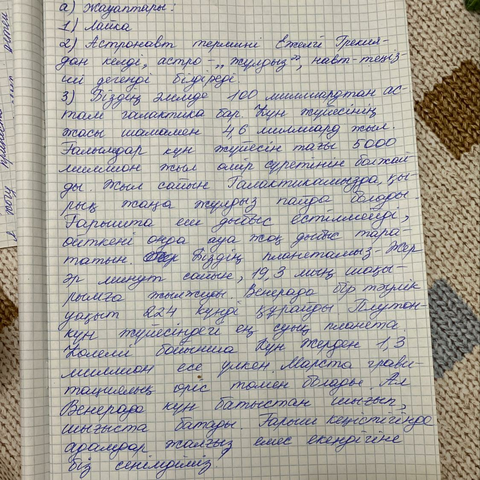 а) жауаптары:
1) Лайка
2) Астронавт термині Ежелгі Грекия-
дан келді, астро - „жұлдыз", навт-теңіз-
ші дегенді білдіреді
3) Біздің әлемде 100 миллиардтан ас-
там галактика бар. Күн жүйесінің
жасы шамамен 4,6 миллиард жыл.
Ғалымдар күн жүйесін тағы 5000
миллион жыл өмір сүретінін болжай-
ды. Жыл сайын Галактикамызда қы-
рық жаңа жұлдыз пайда болады.
Ғарышта еш дыбыс естілмейді,
өйткені онда ауа жоқ дыбыс тара
татын. Біздің планетамыз - Жер
әр минут сайын, 19,3 мың шақы-
рымға жылжиды. Венерада бір тәулік
уақыт 224 күнді құрайды Плутон-
күн жүйесіндегі ең суық планета
Көлемі бойынша Күн Жерден 1,3
миллион есе үлкен. Марста грави-
тациялық өріс төмен болады. Ал
Венерада күн батыстан шығып,
шығыста батады. Ғарыш кеңістігінде
адамдар жалғыз емес екендігіне
біз сенімдіміз